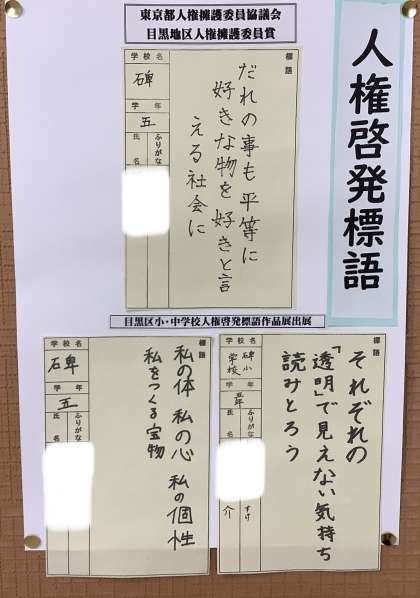 人権啓発標語
東京都人権擁護委員協議会
目黒地区人権擁護委員賞
標語
だれの事も平等に
好きな物を好きと言
える社会に
学校名
碑
学年
五
ふりがな
氏名
目黒区小・中学校人権啓発標語作品展出展
標語
それぞれの
「透明」で見えない気持ち
読みとろう
学校名
碑小
学校
学年
五年
ふりがな
すけ
氏
介
標語
私の体 私の心 私の個性
私をつくる宝物
学校名
碑
学年
五
ふりがな
氏名